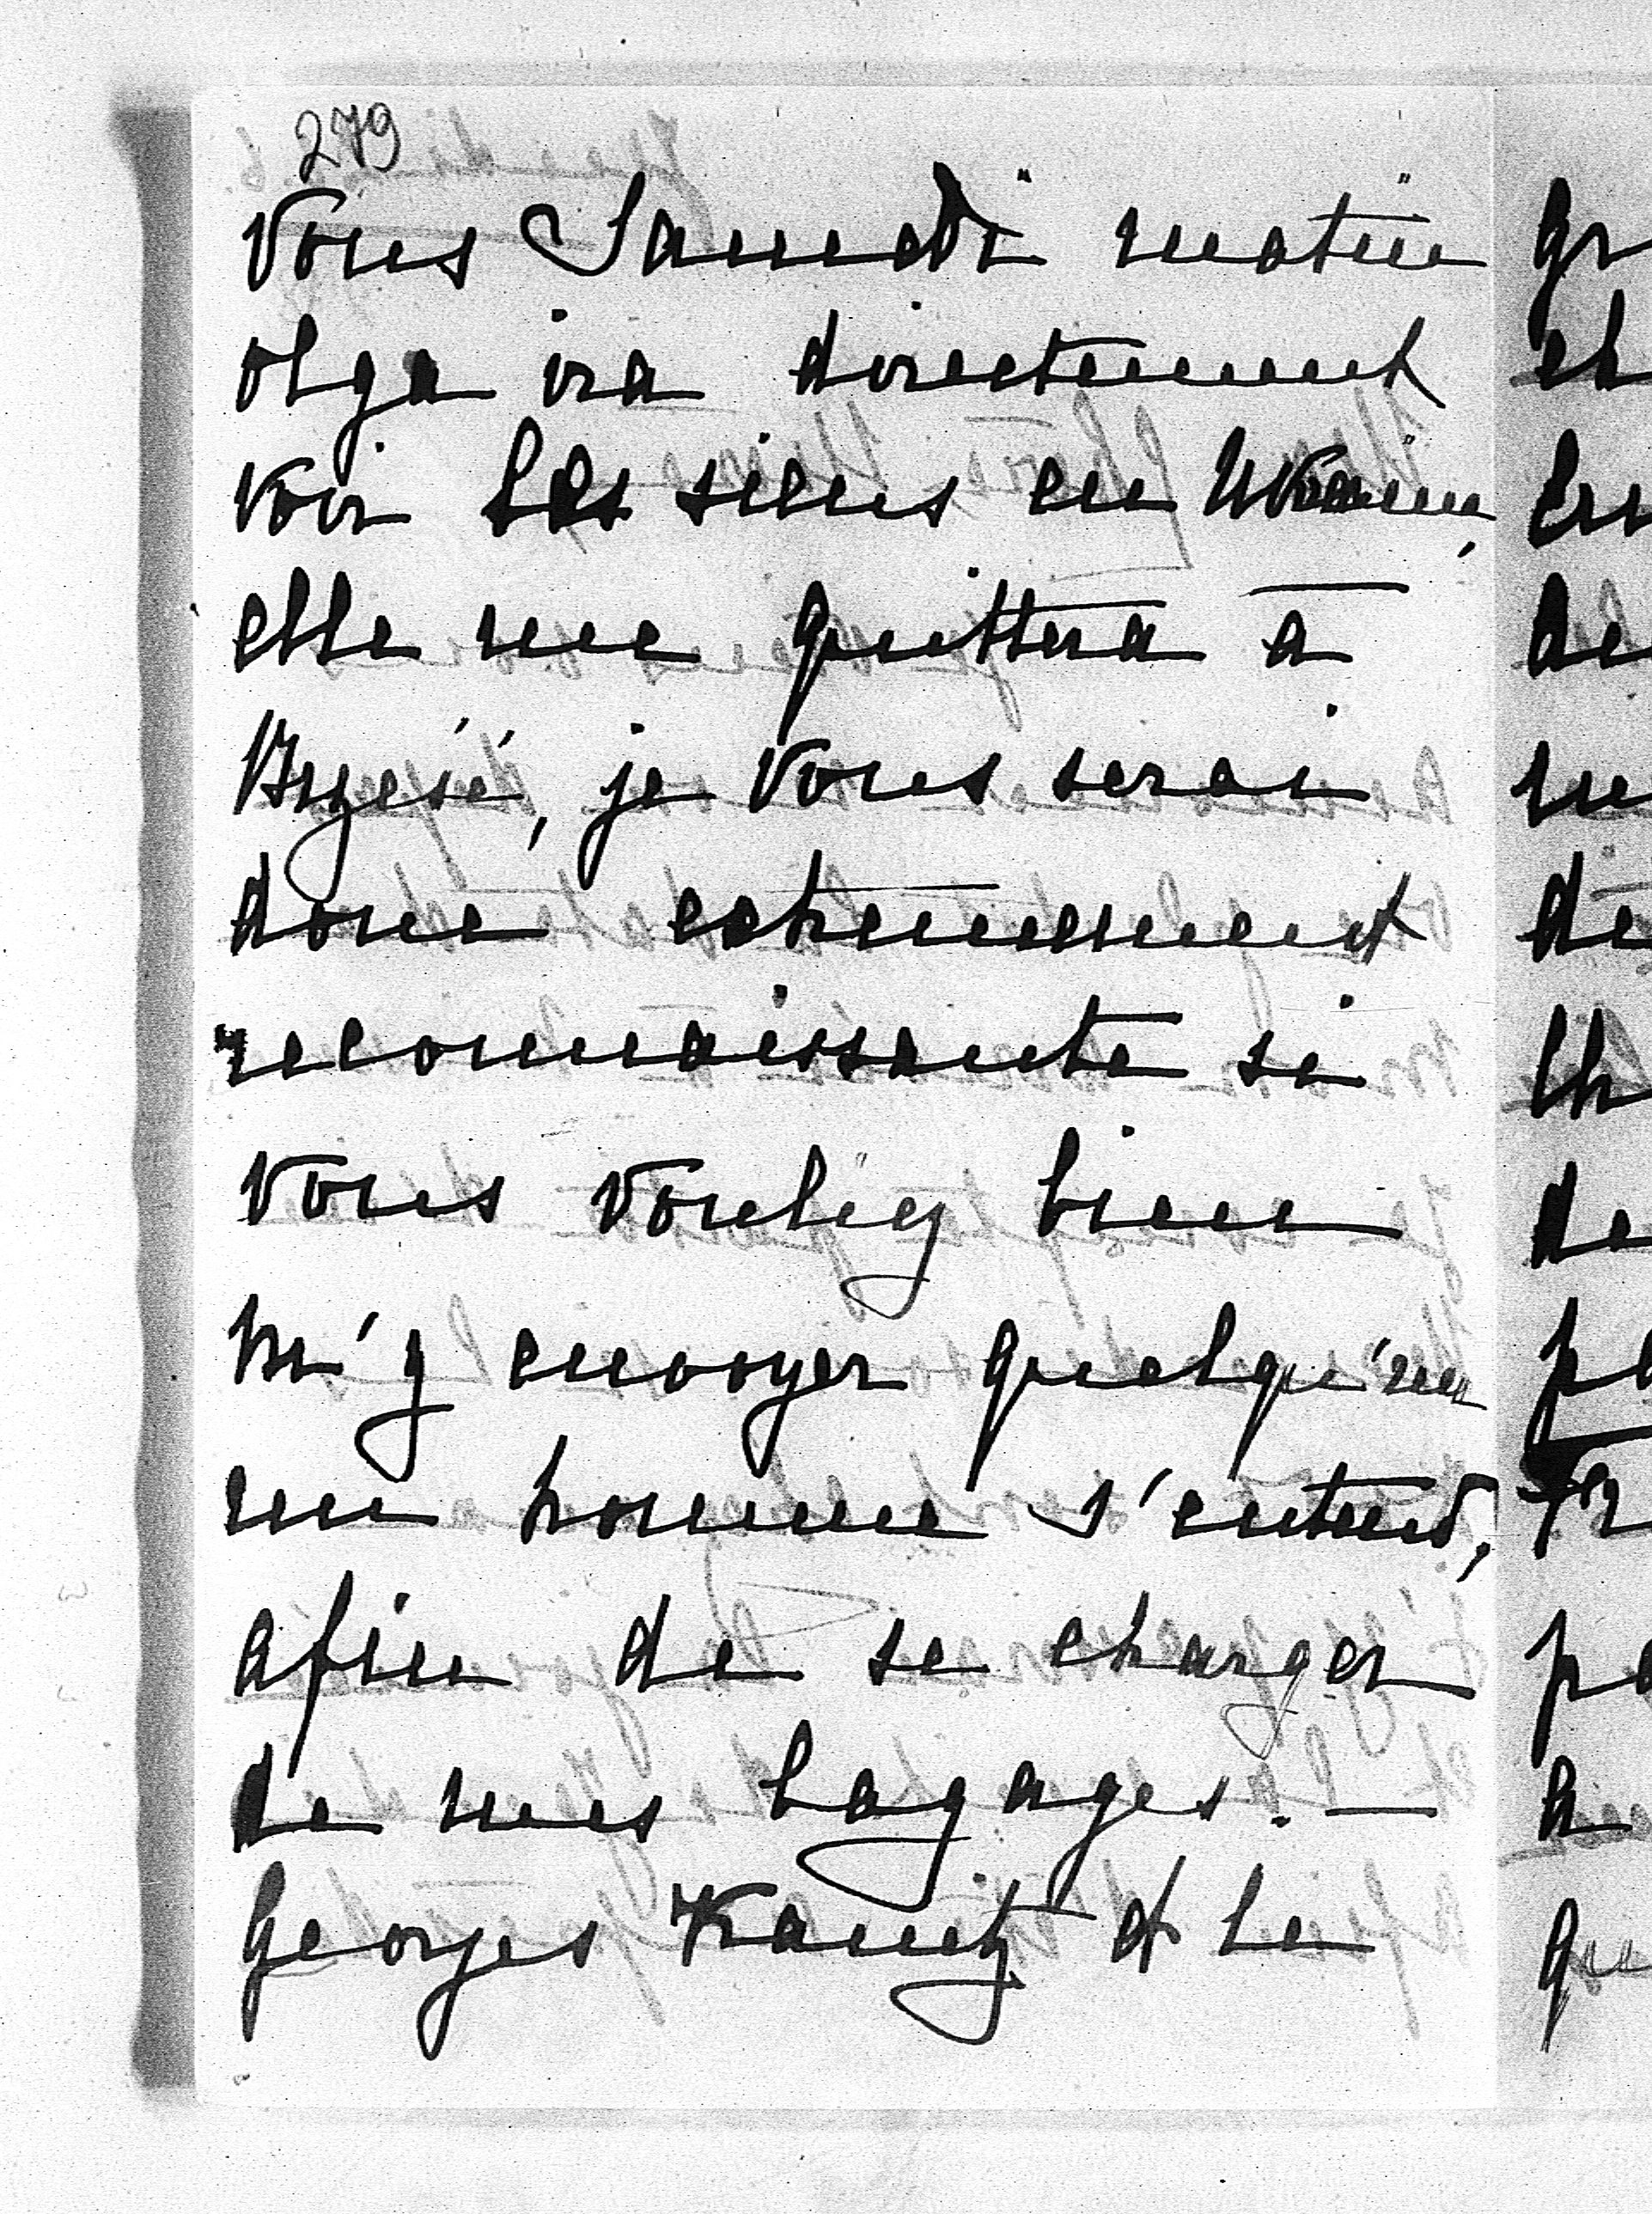 279
Vous Samedi matin
Olga ira directement
voir les siens en Ukraine,
elle me quittera à
Brześć, je vous serai
donc extrêmement
reconnaissante si
vous vouliez bien
m'y envoyer quelqu'un
un homme s'entend,
afin de se charger
de mes bagages. —
Georges Kanitz et le